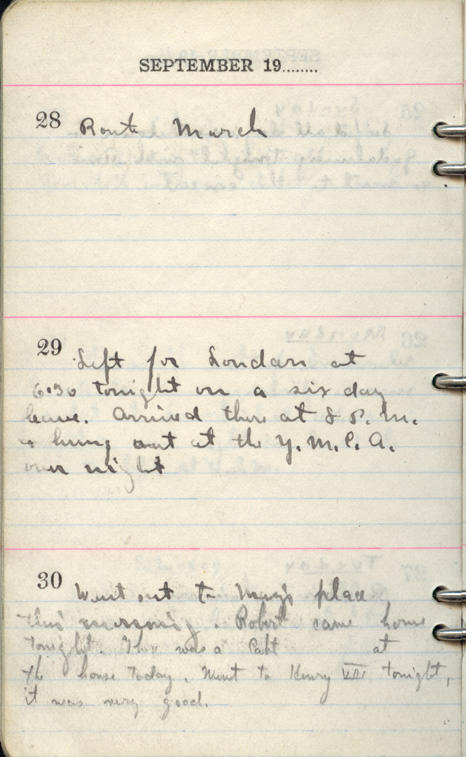 SEPTEMBER 19........
28 Route March
29 Left for London at
6:30 tonight on a six day
leave. Arrived there at 8 P.M.
& hung out at the Y.M.C.A.
over night
30 Went out to May's place
this morning. Robert came home
tonight. There was a Capt at
the house today. Went to Henry VIII tonight,
it was very good.